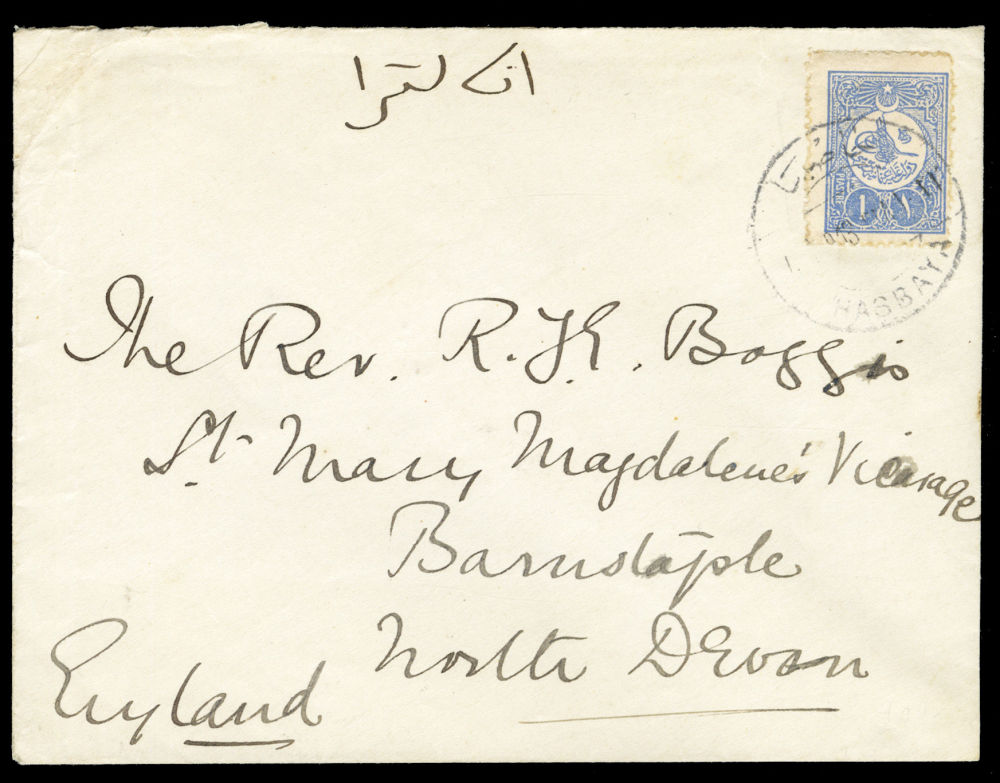 انكلترا
PIASTRE
١ ١
HASBAYA
The Rev. R. J. E. Boggis
St. Mary Magdalene's Vicarage
Barnstaple
North Devon
England